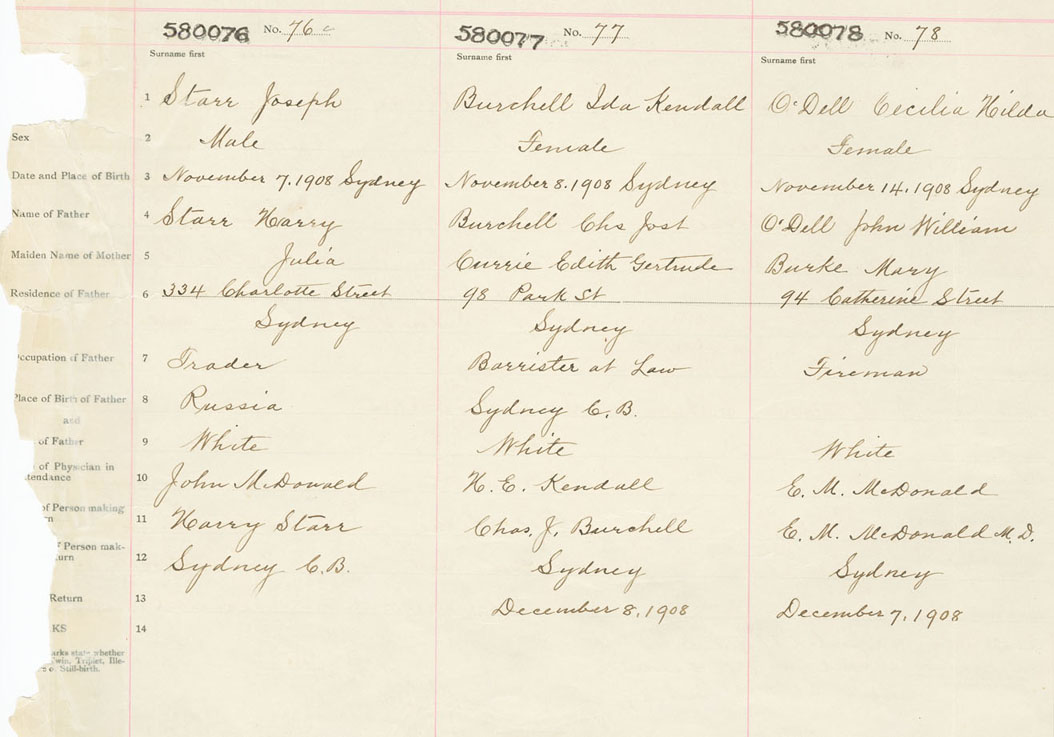 580076 No. 76 580077 No. 77 580078 No. 78
Surname first Surname first Surname first
1 Starr Joseph Burchell Ida Kendall O'Dell Cecilia Hilda
Sex 2 Male Female Female
Date and Place of Birth 3 November 7.1908 Sydney November 8.1908 Sydney November 14.1908 Sydney
Name of Father 4 Starr Harry Burchell Chs Jost O'Dell John William
Maiden Name of Mother 5 Julia Currie Edith Gertrude Burke Mary
Residence of Father 6 334 Charlotte Street 98 Park St 94 Catherine Street
Sydney Sydney Sydney
ccupation of Father 7 Trader Barrister at Law Fireman
Place of Birth of Father 8 Russia Sydney C.B.
and
of Father 9 White White White
of Physician in
tendance 10 John McDonald H.E. Kendall E. M. McDonald
of Person making
n 11 Harry Starr Chas. J. Burchell E. M. McDonald M.D.
f Person mak-
urn 12 Sydney C.B. Sydney Sydney
Return 13 December 8, 1908 December 7, 1908
KS 14
arks state whether
win, Triplet, Ille-
e. Still-birth.